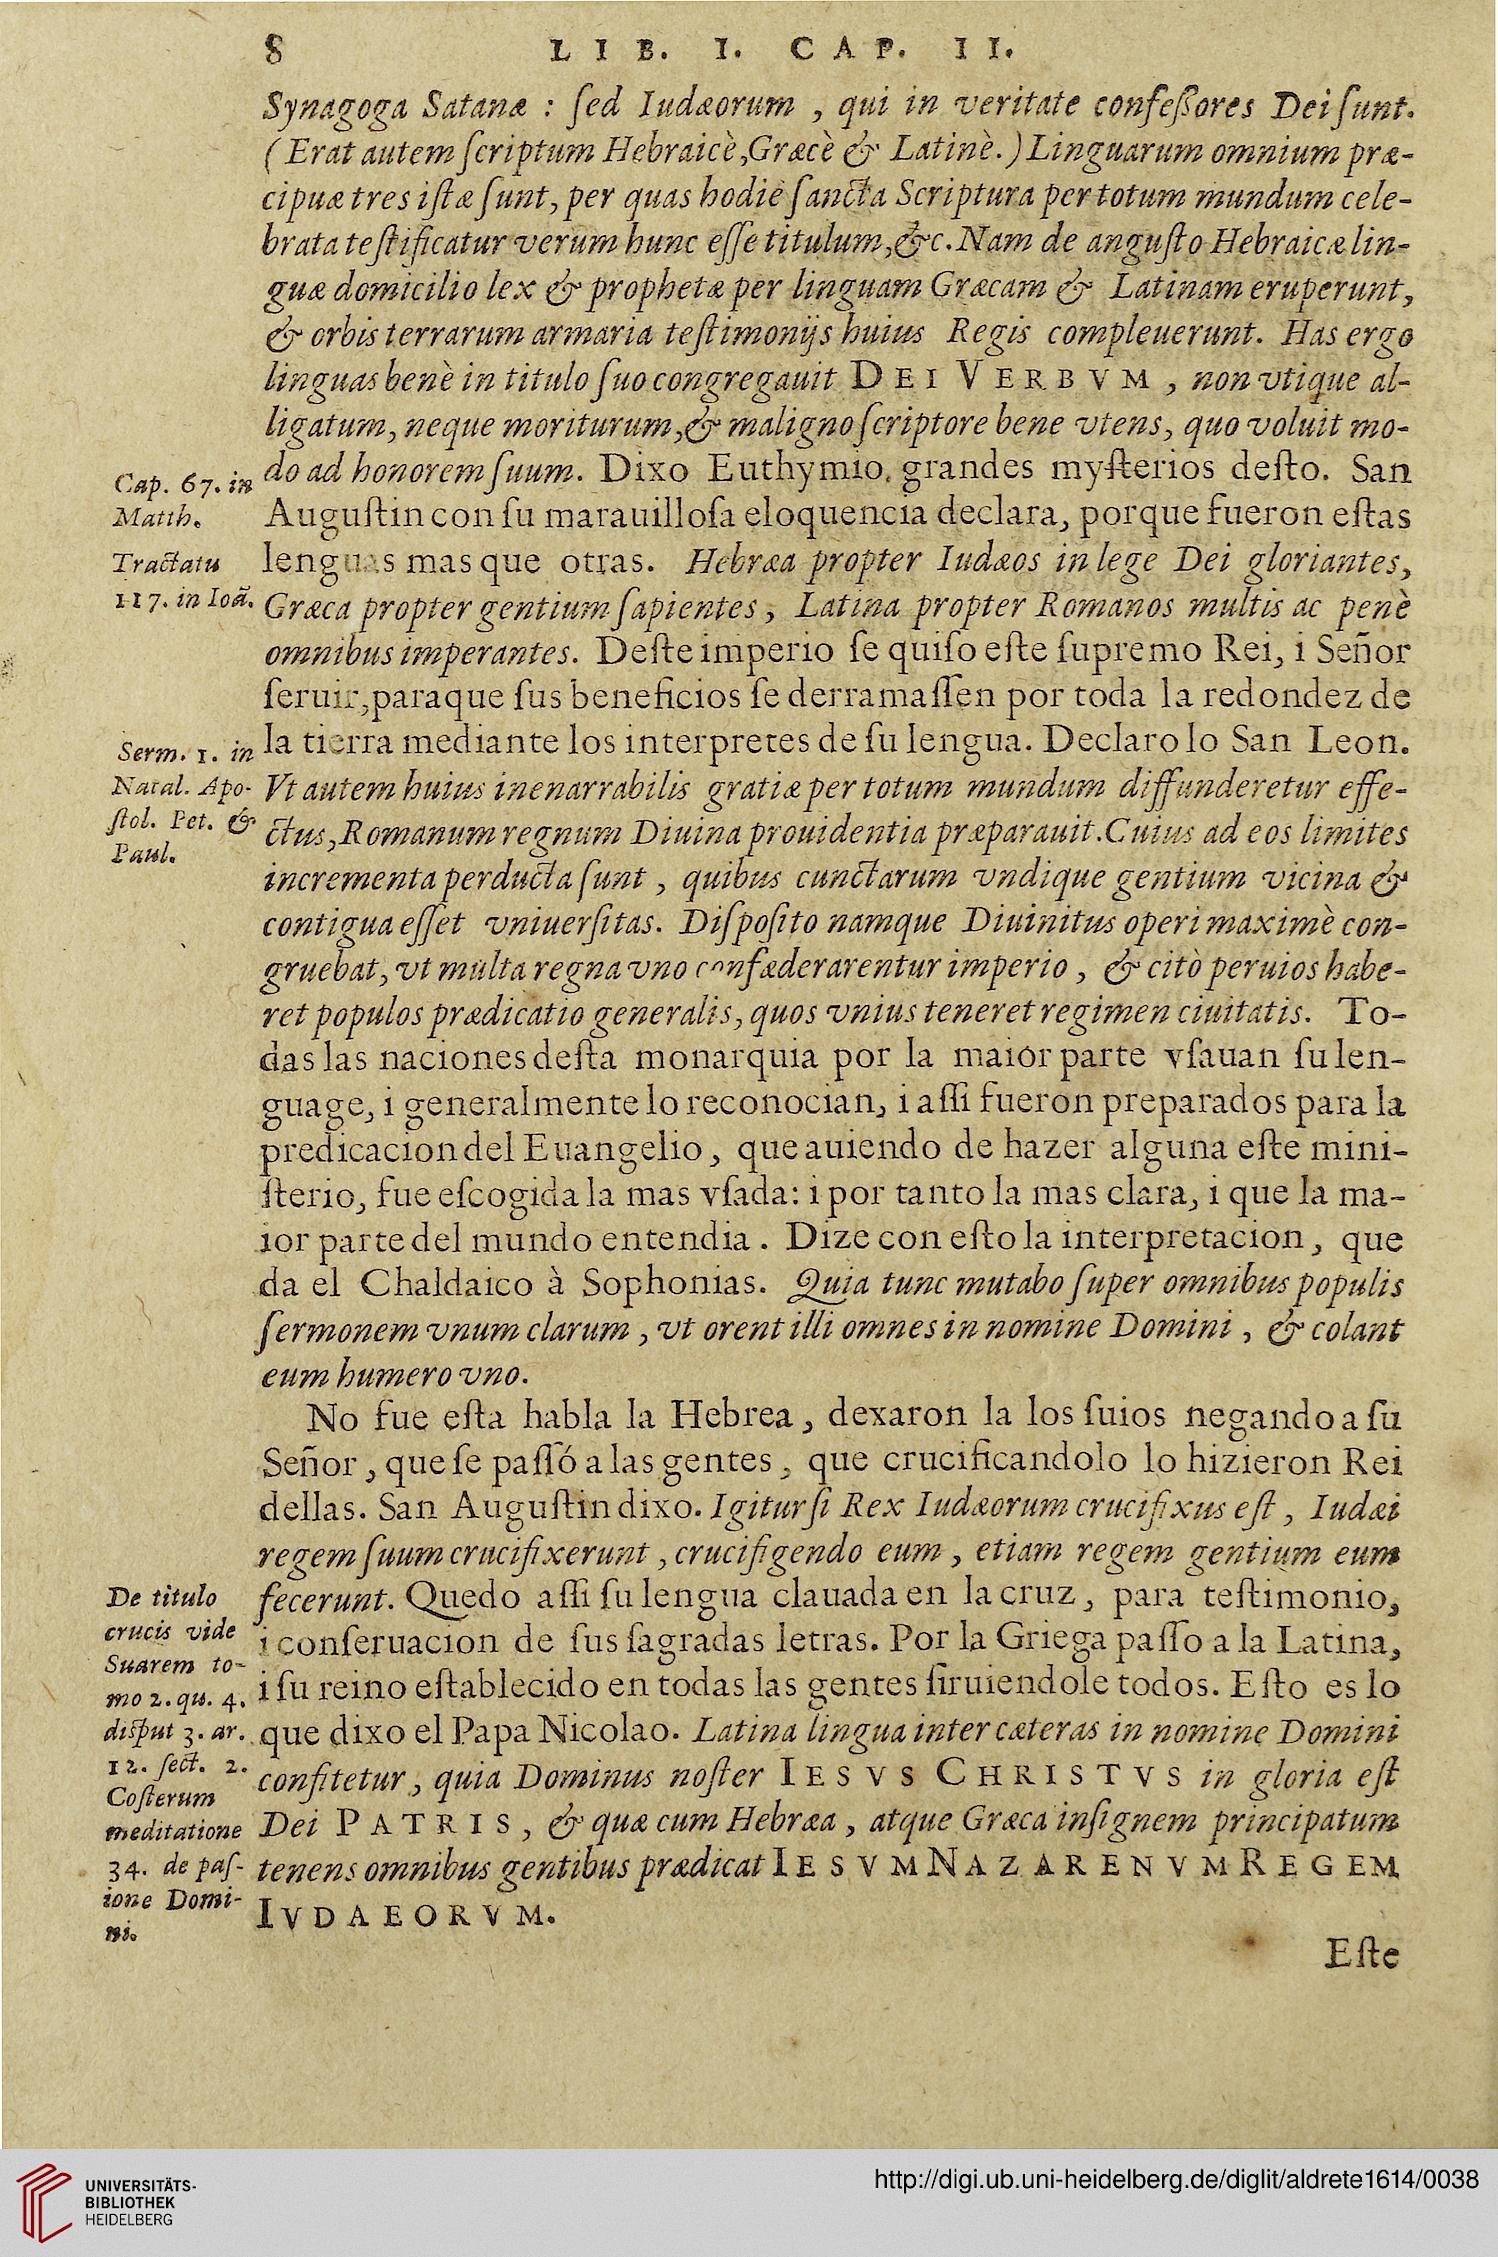 8 LIB. I. CAP. II.
Synagoga Satanæ : ſed Iudæorum , qui in veritate confeſſores Dei ſunt.
( Erat autem ſcriptum Hebraicè,Græcè & Latinè.) Linguarum omnium præ-
cipuæ tres iſtæ ſunt, per quas hodie ſancta Scriptura per totum mundum cele-
brata teſtificatur verum hunc eſſe titulum,&c. Nam de anguſto Hebraicæ lin-
guæ domicilio lex & prophetæ per linguam Græcam & Latinam eruperunt,
& orbis terrarum armaria teſtimonijs huius Regis compleuerunt. Has ergo
linguas benè in titulo ſuo congregauit DEI VERBVM , non vtique al-
ligatum, neque moriturum,& maligno ſcriptore bene vtens, quo voluit mo-
do ad honorem ſuum. Dixo Euthymio. grandes myſterios deſto. San
Auguſtin con ſu marauilloſa eloquencia declara, porque fueron eſtas
lenguas mas que otras. Hebræa propter Iudæos in lege Dei gloriantes,
Græca propter gentium ſapientes, Latina propter Romanos multis ac penè
omnibus imperantes. Deſte imperio ſe quiſo eſte ſupremo Rei, i Señor
ſeruir,paraque ſus beneficios ſe derramaſſen por toda la redondez de
la tierra mediante los interpretes de ſu lengua. Declarolo San Leon.
Vt autem huius inenarrabilis gratiæ per totum mundum diffunderetur effe-
ctus,Romanum regnum Diuina prouidentia præparauit.Cuius ad eos limites
incrementa perducta ſunt , quibus cunctarum vndique gentium vicina &
contigua eſſet vniuerſitas. Diſpoſito namque Diuinitus operi maximè con-
gruebat, vt multa regna vno confæderarentur imperio , & citò peruios habe-
ret populos prædicatio generalis, quos vnius teneret regimen ciuitatis. To-
das las naciones deſta monarquia por la maior parte vſauan ſu len-
guage, i generalmente lo reconocian, i aſſi fueron preparados para la
predicacion del Euangelio, que auiendo de hazer alguna eſte mini-
ſterio, fue eſcogida la mas vſada: i por tanto la mas clara, i que la ma-
ior parte del mundo entendia. Dize con eſto la interpretacion, que
da el Chaldaico à Sophonias. Quia tunc mutabo ſuper omnibus populis
ſermonem vnum clarum , vt orent illi omnes in nomine Domini , & colant
eum humero vno.
No fue eſta habla la Hebrea, dexaron la los ſuios negando a ſu
Señor, que ſe paſſó a las gentes, que crucificandolo lo hizieron Rei
dellas. San Auguſtin dixo. Igitur ſi Rex Iudæorum crucifixus eſt , Iudæi
regem ſuum crucifixerunt , crucifigendo eum , etiam regem gentium eum
fecerunt. Quedo aſſi ſu lengua clauada en la cruz, para teſtimonio,
i conſeruacion de ſus ſagradas letras. Por la Griega paſſo a la Latina,
i ſu reino eſtablecido en todas las gentes ſiruiendole todos. Eſto es lo
que dixo el Papa Nicolao. Latina lingua inter cæteras in nomine Domini
confitetur, quia Dominus noſter IESVS CHRISTVS in gloria eſt
Dei PATRIS, & quæ cum Hebræa , atque Græca inſignem principatum
tenens omnibus gentibus prædicat IESVM NAZARENVM REGEM
IVDAEORVM.
Eſte
Cap. 67. in
Matth.
Tractatu
117. in Ioã.
Serm. 1. in
Natal. Apo-
ſtol. Pet. &
Paul.
De titulo
crucis vide
Suarem to-
mo 2. qu. 4.
diſput 3. ar.
12. ſect. 2.
Coſterum
meditatione
34. de paſ-
ione Domi-
ni.
UNIVERSITÄTS-
BIBLIOTHEK
HEIDELBERG
http://digi.ub.uni-heidelberg.de/diglit/aldrete1614/0038